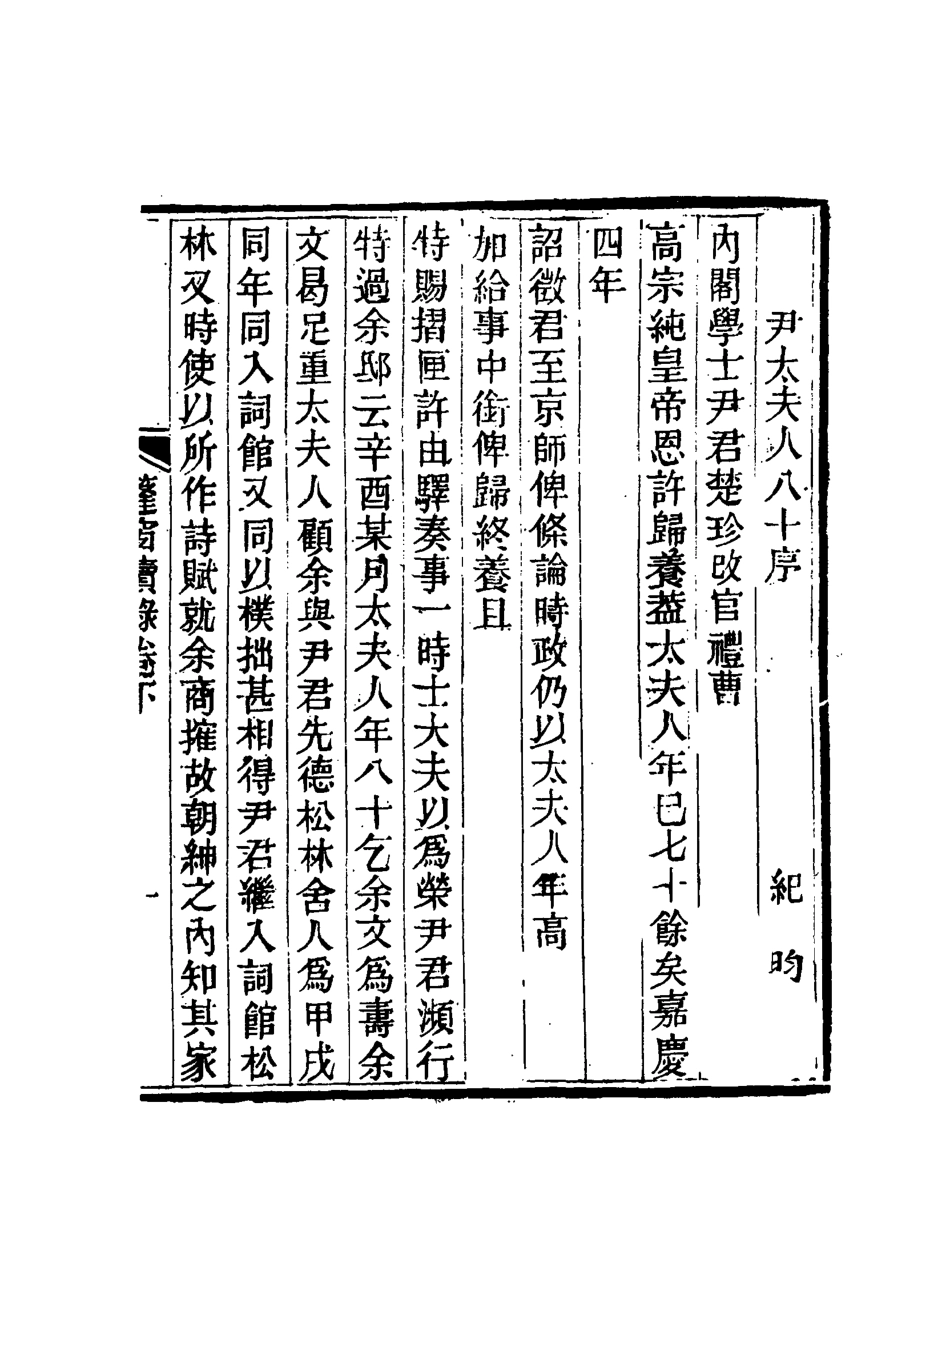 尹太夫人八十序　紀昀
內閣學士尹君楚珍改官禮曹
高宗純皇帝恩許歸養蓋太夫人年已七十餘矣嘉慶
四年
詔徵君至京師俾條論時政仍以太夫人年高
加給事中銜俾歸終養且
特賜摺匣許由驛奏事一時士大夫以爲榮尹君瀕行
特過余邸云辛酉某月太夫人年八十乞余文爲壽余
文曷足重太夫人顧余與尹君先德松林舍人爲甲戌
同年同入詞館又同以樸拙甚相得尹君繼入詞館松
林又時使以所作詩賦就余商搉故朝紳之內知其家
篷窗續錄卷下
一